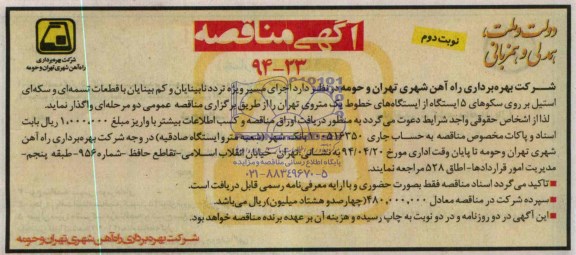 دولت و ملت،
همدلی و همزبانی
نوبت دوم
آگهی مناقصه
۹۴-۲۳
شرکت بهره‌برداری
راه‌آهن شهری تهران و حومه
شرکت بهره‌برداری راه آهن شهری تهران و حومه در نظر دارد اجرای مسیر ویژه تردد نابینایان و کم بینایان با قطعات تسمه‌ای و سکه‌ای
استیل بر روی سکوهای ۱۵ ایستگاه از ایستگاه‌های خطوط یک متروی تهران را از طریق برگزاری مناقصه عمومی دو مرحله‌ای واگذار نماید.
لذا از اشخاص حقوقی واجد شرایط دعوت می‌گردد به منظور دریافت اوراق مناقصه و کسب اطلاعات بیشتر با واریز مبلغ ۱,۰۰۰,۰۰۰ ریال بابت
اسناد و پاکات مخصوص مناقصه به حساب جاری بانک شهر (شعبه مترو ایستگاه صادقیه) در وجه شرکت بهره‌برداری راه آهن
شهری تهران و حومه تا پایان وقت اداری مورخ ۹۴/۰۴/۲۰ به نشانی تهران - خیابان انقلاب اسلامی - تقاطع حافظ - شماره ۹۵۶ - طبقه پنجم -
مدیریت امور قراردادها - اطاق ۵۲۸ مراجعه نمایند.
پایگاه اطلاع رسانی مناقصه و مزایده
۰۲۱-۸۸۳۴۹۶۷۰-۵
• تاکید می‌گردد اسناد مناقصه فقط بصورت حضوری و با ارایه معرفی‌نامه رسمی قابل دریافت است.
• سپرده شرکت در مناقصه معادل ۴۸۰,۰۰۰,۰۰۰ (چهارصد و هشتاد میلیون) ریال می‌باشد.
• این آگهی در دو روزنامه و در دو نوبت به چاپ رسیده و هزینه آن بر عهده برنده مناقصه خواهد بود.
شرکت بهره‌برداری راه‌آهن شهری تهران و حومه